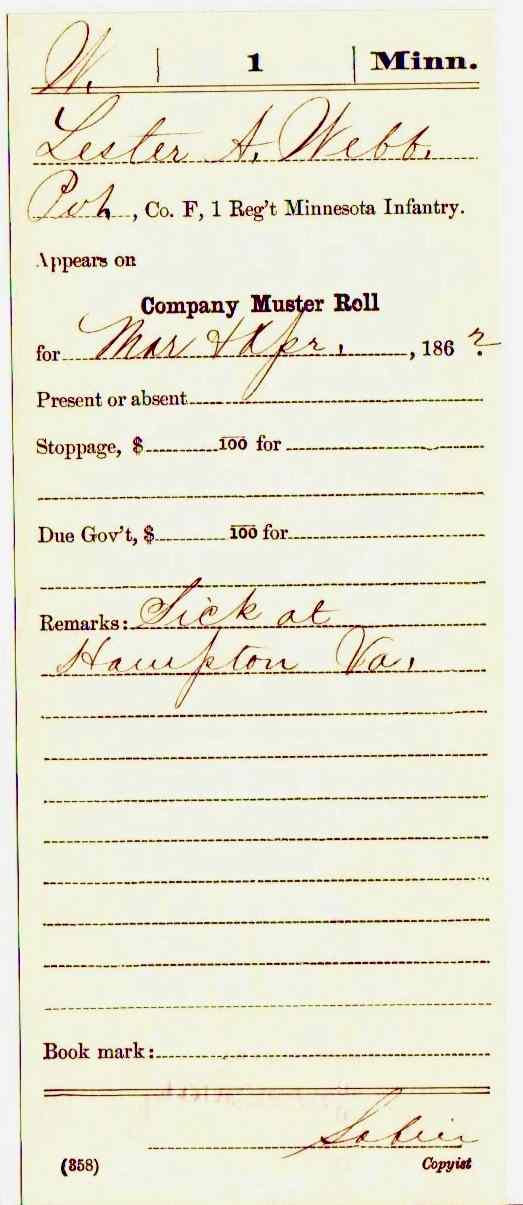 W. | 1 | Minn.
Lester A. Webb.
Pvt, Co. F, 1 Reg't Minnesota Infantry.
Appears on
Company Muster Roll
for Mar & Apr., 1862.
Present or absent
Stoppage, $ 100 for
Due Gov't, $ 100 for
Remarks: Sick at
Hampton Va.
Book mark:
(358) Copyist